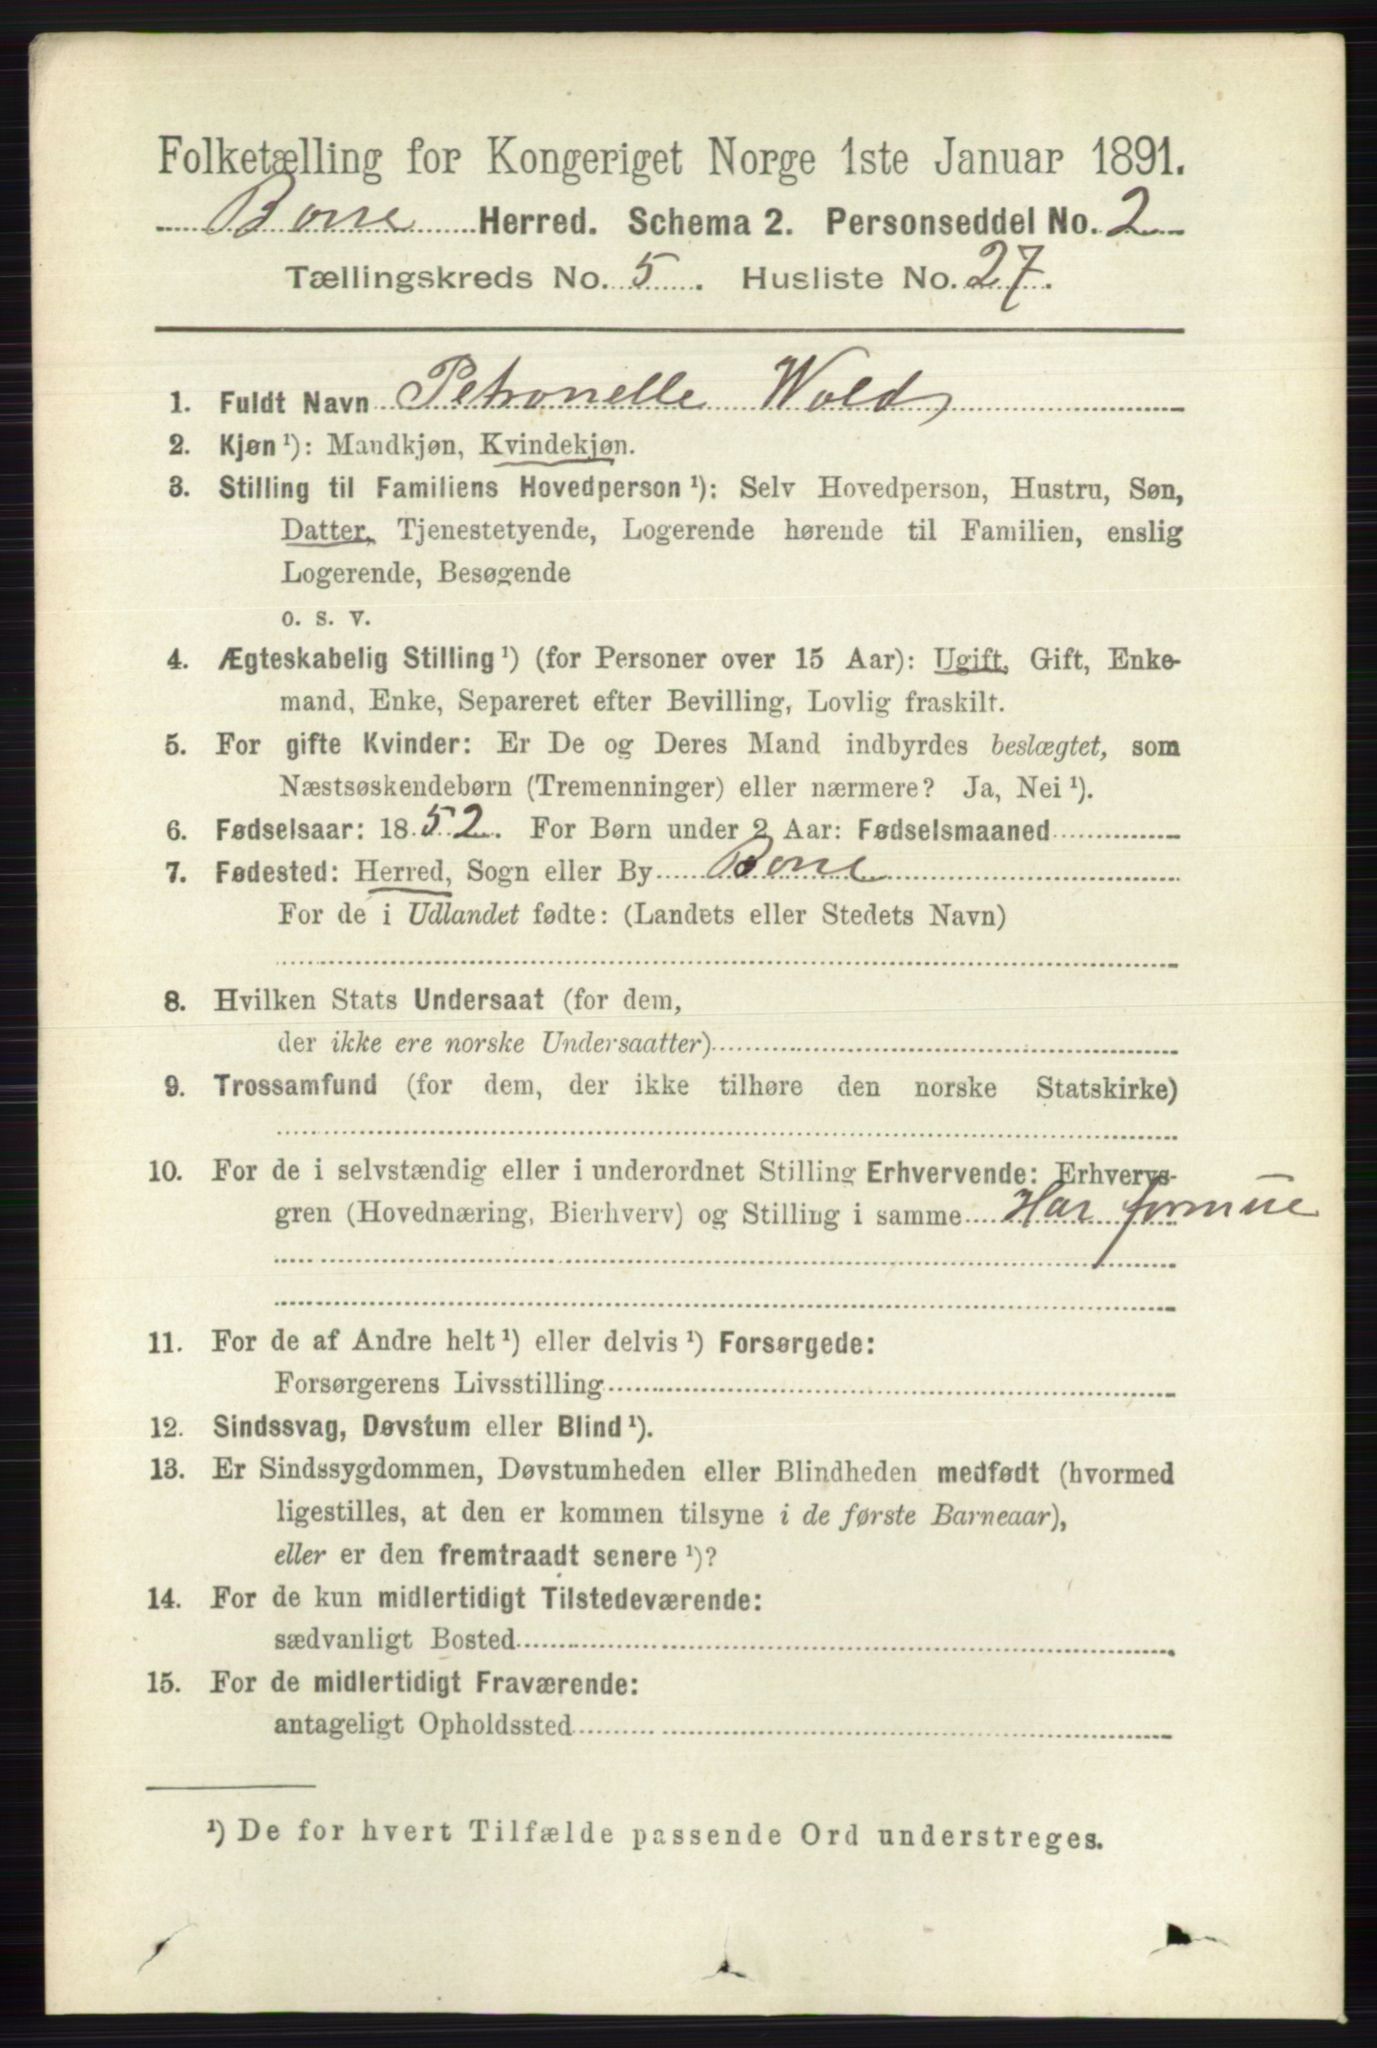 Folketælling for Kongeriget Norge 1ste Januar 1891.
Borre Herred. Schema 2. Personseddel No. 2
Tællingskreds No. 5. Husliste No. 27.
1. Fuldt Navn Petronelle Wold
2. Kjøn¹): Mandkjøn, Kvindekjøn.
3. Stilling til Familiens Hovedperson¹): Selv Hovedperson, Hustru, Søn,
Datter, Tjenestetyende, Logerende hørende til Familien, enslig
Logerende, Besøgende
o. s. v.
4. Ægteskabelig Stilling¹) (for Personer over 15 Aar): Ugift, Gift, Enke-
mand, Enke, Separeret efter Bevilling, Lovlig fraskilt.
5. For gifte Kvinder: Er De og Deres Mand indbyrdes beslægtet, som
Næstsøskendebørn (Tremenninger) eller nærmere? Ja, Nei¹).
6. Fødselsaar: 1852. For Børn under 2 Aar: Fødselsmaaned
7. Fødested: Herred, Sogn eller By Borre
For de i Udlandet fødte: (Landets eller Stedets Navn)
8. Hvilken Stats Undersaat (for dem,
der ikke ere norske Undersaatter)
9. Trossamfund (for dem, der ikke tilhøre den norske Statskirke)
10. For de i selvstændig eller i underordnet Stilling Erhvervende: Erhvervs-
gren (Hovednæring, Bierhverv) og Stilling i samme Har formue
11. For de af Andre helt¹) eller delvis¹) Forsørgede:
Forsørgerens Livsstilling
12. Sindssvag, Døvstum eller Blind¹).
13. Er Sindssygdommen, Døvstumheden eller Blindheden medfødt (hvormed
ligestilles, at den er kommen tilsyne i de første Barneaar),
eller er den fremtraadt senere¹)?
14. For de kun midlertidigt Tilstedeværende:
sædvanligt Bosted
15. For de midlertidigt Fraværende:
antageligt Opholdssted
¹) De for hvert Tilfælde passende Ord understreges.